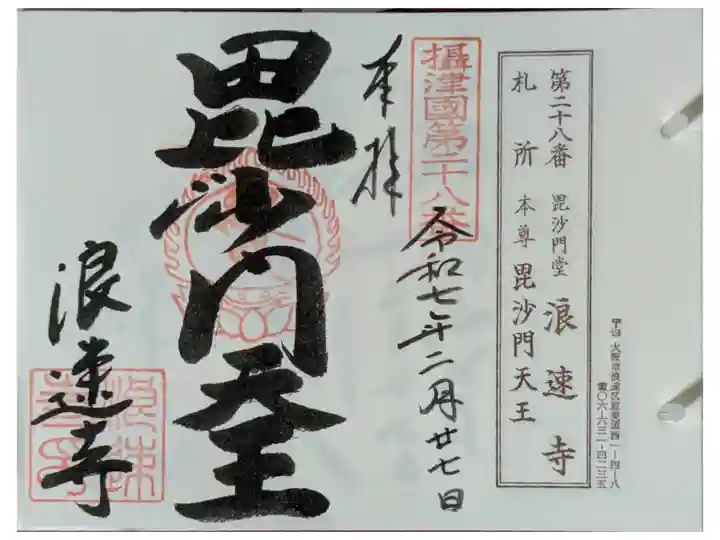 〒556 大阪市浪速区恵美須西一–四–八
電〇六–六三一–四二三五
第二十八番 毘沙門堂 浪速寺
札所 本尊 毘沙門天王
攝津國第二十八番
奉拝
令和七年二月廿七日
毘沙門天王
浪速寺